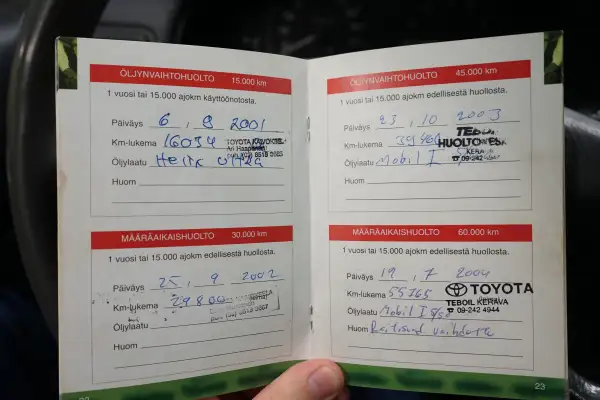 ÖLJYNVAIHTOHUOLTO 15.000 km
1 vuosi tai 15.000 ajokm käyttöönotosta.
Päiväys 6 . 9 2001
Km-lukema 16034
Öljylaatu Helix Ultra
Huom
MÄÄRÄAIKAISHUOLTO 30.000 km
1 vuosi tai 15.000 ajokm edellisestä huollosta.
Päiväys 25 . 9 2002
Km-lukema 29800
Öljylaatu
Huom
ÖLJYNVAIHTOHUOLTO 45.000 km
1 vuosi tai 15.000 ajokm edellisestä huollosta.
Päiväys 23 . 10 2003
Km-lukema
Öljylaatu Mobil 1
HUOLTO
09-242
Huom
MÄÄRÄAIKAISHUOLTO 60.000 km
1 vuosi tai 15.000 ajokm edellisestä huollosta.
Päiväys 19 . 7 2004
Km-lukema 55765
TOYOTA
TEBOIL KERAVA
09-242 4944
Öljylaatu Mobil 1
Huom
23